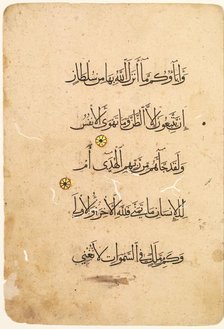 وَآبَاؤُكُم مَّا أَنزَلَ اللَّهُ بِهَا مِن سُلْطَانٍ
إِن يَتَّبِعُونَ إِلَّا الظَّنَّ وَمَا تَهْوَى الْأَنفُسُ
وَلَقَدْ جَاءَهُم مِّن رَّبِّهِمُ الْهُدَىٰ أَمْ
لِلْإِنسَانِ مَا تَمَنَّىٰ فَلِلَّهِ الْآخِرَةُ وَالْأُولَىٰ
وَكَم مِّن مَّلَكٍ فِي السَّمَاوَاتِ لَا تُغْنِي